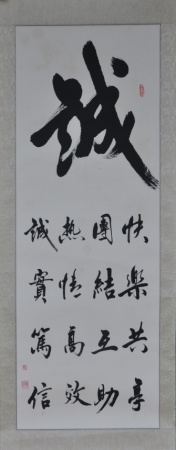 誠
快樂共享
團結互助
熱情高效
誠實篤信